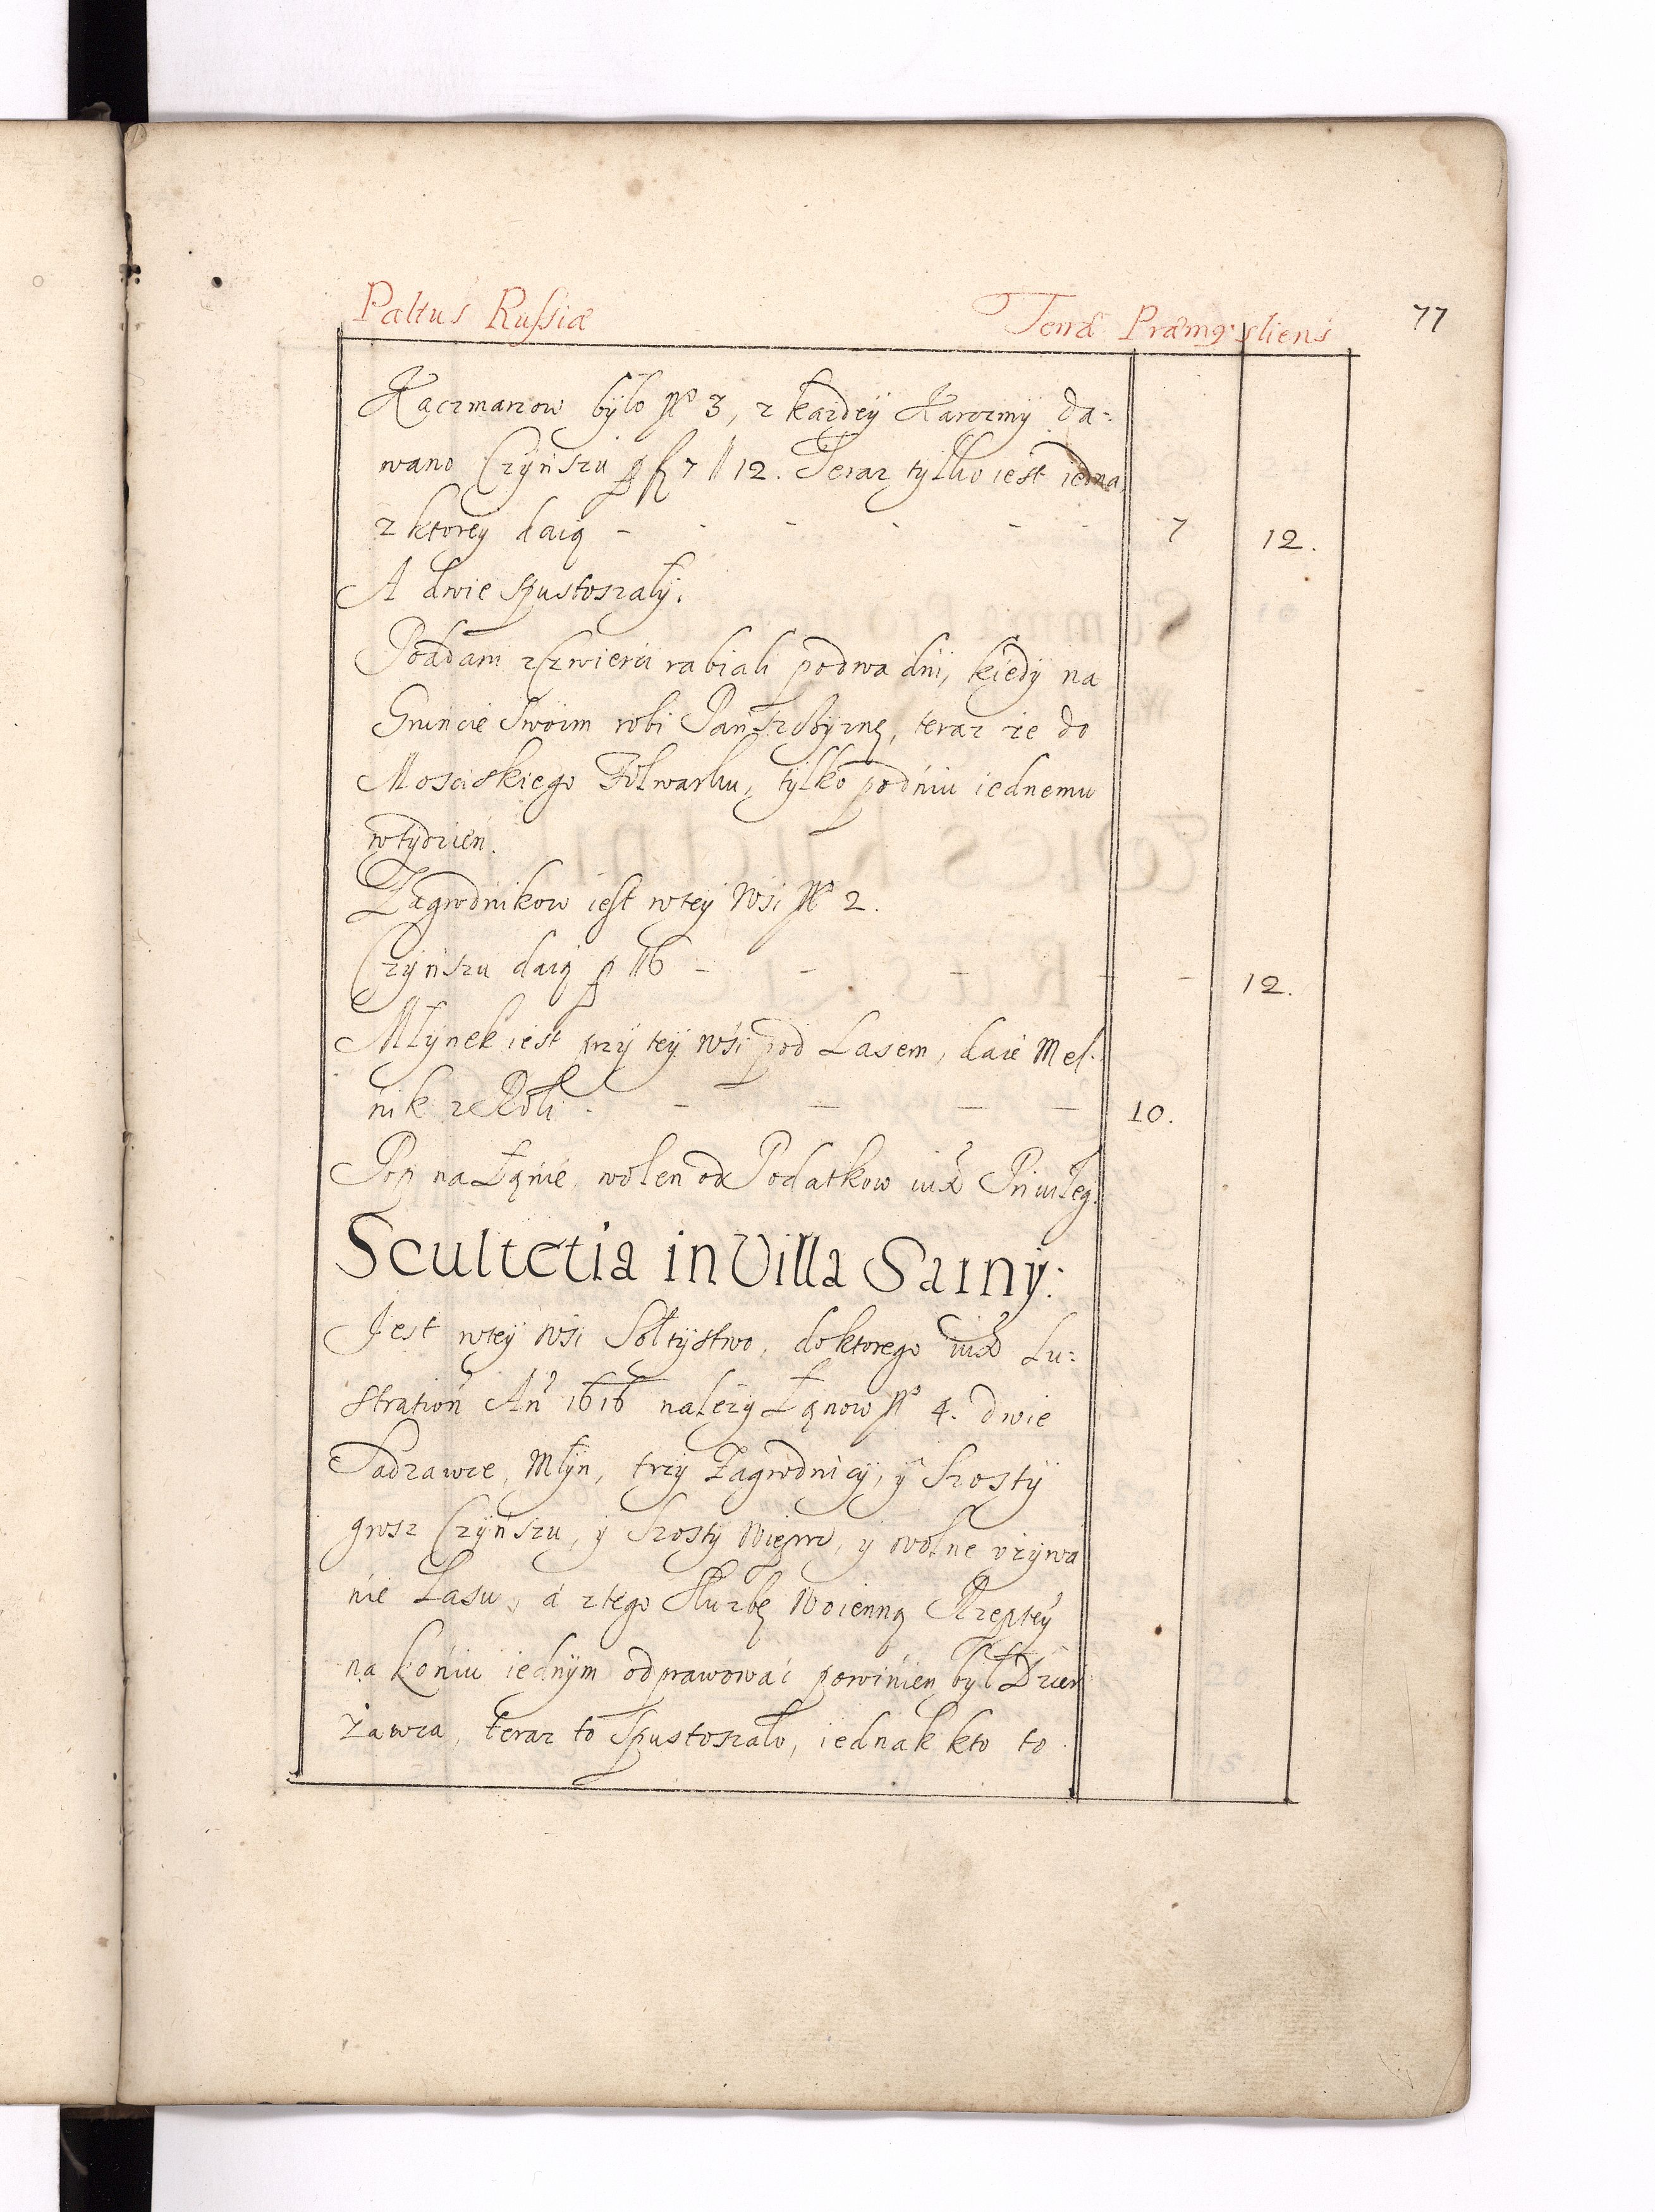 Paltus Russiæ Terræ Præmysliens 77
Kaczmarzow było No 3, z kazdey Karczmy da=
wano Czynszu p fl 7 ll 12. Teraz tylko iest iedna
z ktorey daią - - - - - - 7 12.
A dwie spustoszały.
Poddani z Czwierci rabiali podwa dni, kiedy na
Gruncie Swoim robi Panszczyznę, teraz ze do
Mosciskiego Folwarku, tylko podniu iednemu
wtydzien.
Zagrodnikow iest wtey Wsi No 2.
Czynszu daią p ll6 - - - - - 12.
Młynek iest przy tey Wsi pod Lasem, daie Mel=
nik z Roli - - - - - 10.
Pop na Łanie, wolen od Podatkow iuxa Priuileg.
Scultetia in Villa Sarny.
Jest wtey Wsi Sołtystwo, doktorego iuxa Lu=
stration An 1616 należy Łanow No 4. dwie
Sadzawce, Młyn, trzy Zagrodnicy, y Szosty
grosz Czynszu, y Szosty Wieprz, y wolne vzywa
nie Lasu, a ztego Służbę Woienną Rzeptey
na koniu iednym odprawować powinien był Dzier
zawca, teraz to Spustoszało, iednak kto to